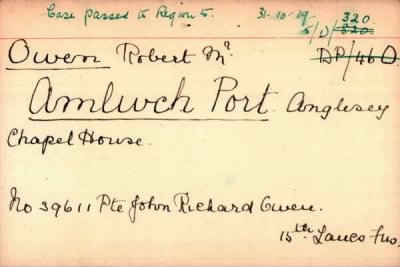 Case passed to Region 5. 31-10-29 320
5/D/820
Owen Robert Mr DP/460.
Amlwch Port Anglesey
Chapel House.
No 39611 Pte John Richard Owen.
15th Lancs Fus.